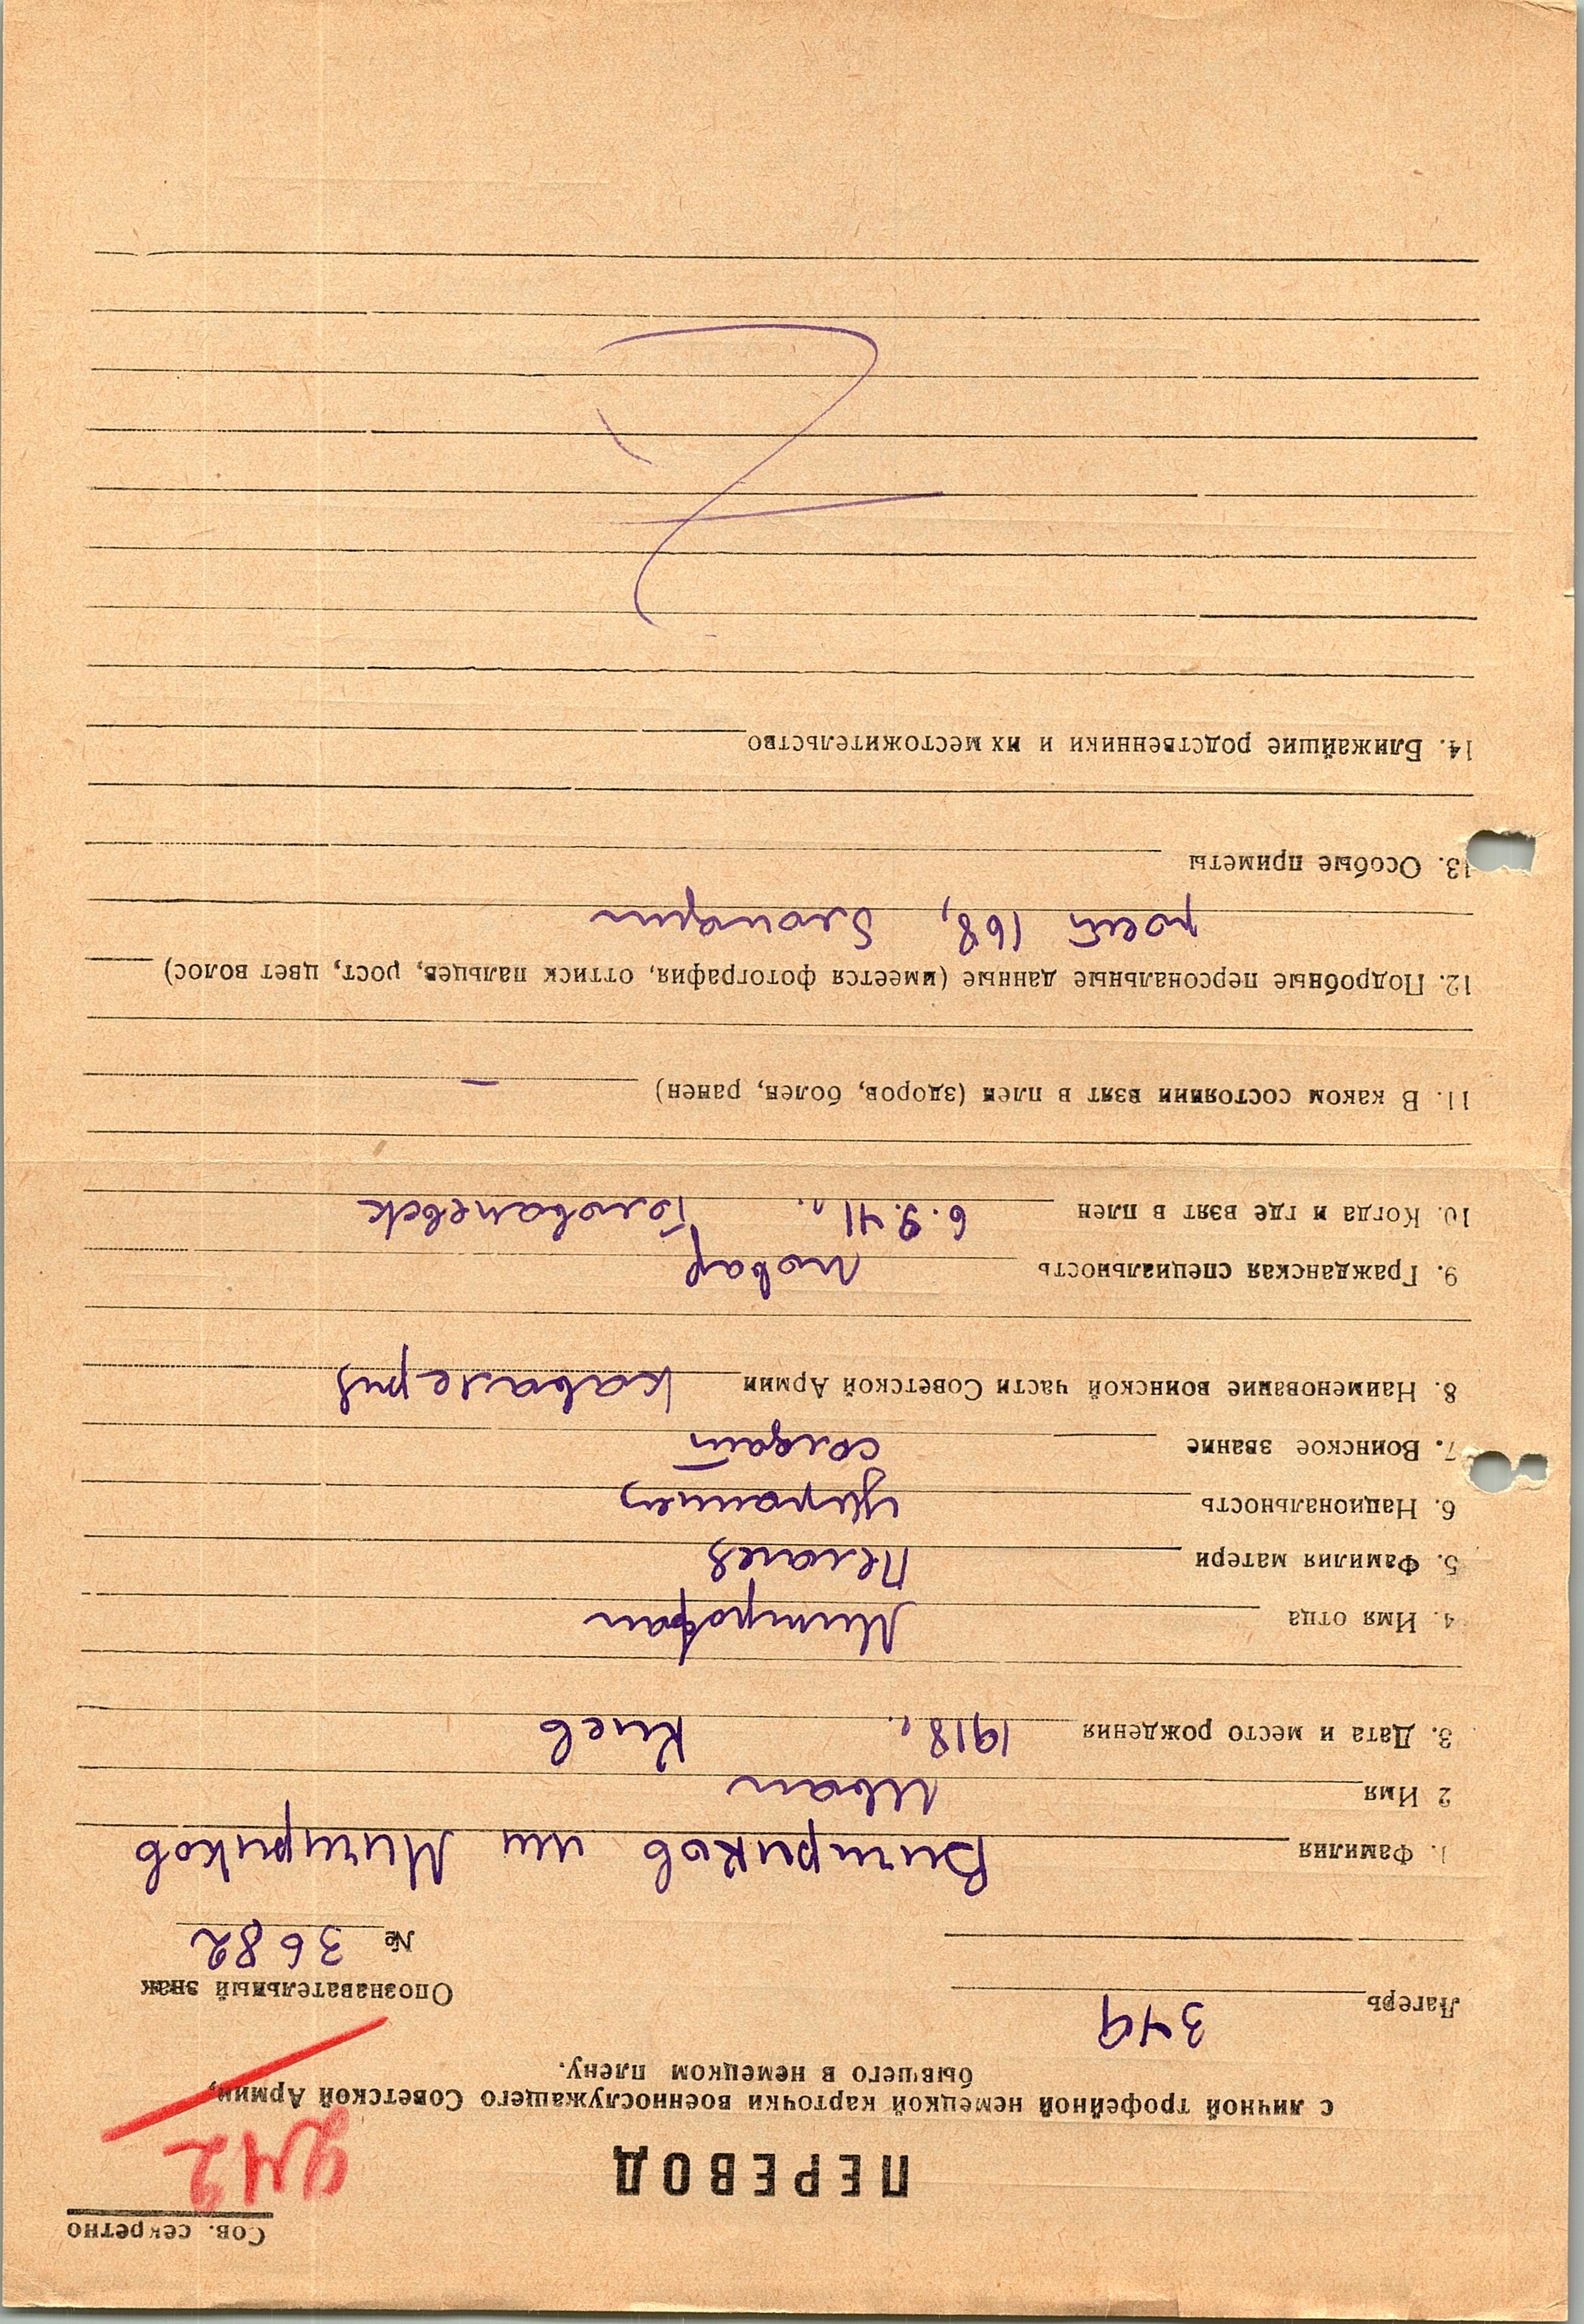 Сов. секретно
942
ПЕРЕВОД
с личной трофейной немецкой карточки военнослужащего Советской Армии,
бывшего в немецком плену.
Лагерь 349
Опознавательный знак
№ 3682
1. Фамилия Вичтриков или Мичуриков
2 Имя Иван
3. Дата и место рождения 1918 г. Киев
4. Имя отца Митрофан
5. Фамилия матери Пелагея
6. Национальность украинец
7. Воинское звание солдат
8. Наименование воинской части Советской Армии кавалерия
9. Гражданская специальность повар
10. Когда и где взят в плен 6.9.41 г. Головатевск
11. В каком состоянии взят в плен (здоров, болен, ранен) —
12. Подробные персональные данные (имеется фотография, оттиск пальцев, рост, цвет волос)
рост 168, блондин
13. Особые приметы
14. Ближайшие родственники и их местожительство